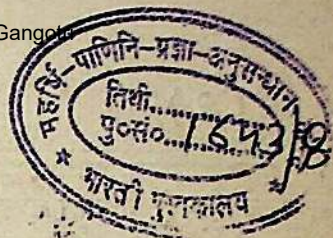 Gangotri
महर्षि-पाणिनि-प्रज्ञा-अनुसन्धान
तिथी..............
पु०सं०.............
★ भारती पुस्तकालय ★